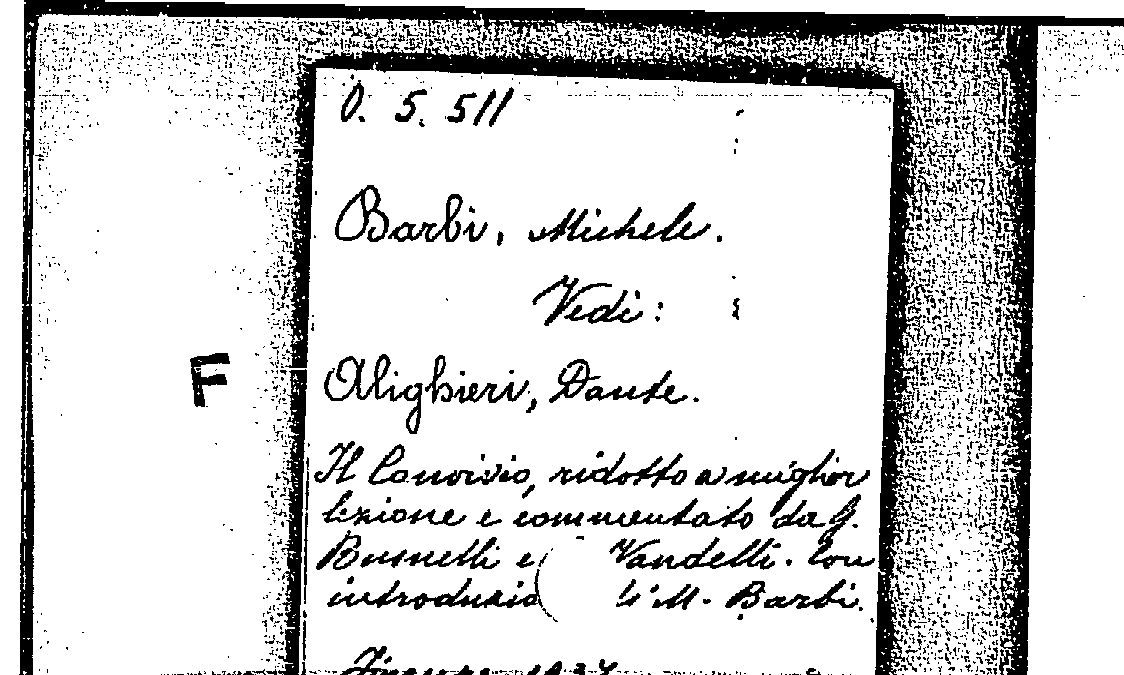 O. 5. 511
Barbi, Michele.
Vedi:
F
Alighieri, Dante.
Il Convivio, ridotto a miglior
lezione e commentato da G.
Busnelli e Vandelli. Con
introduzio di M. Barbi.
Firenze, 1934